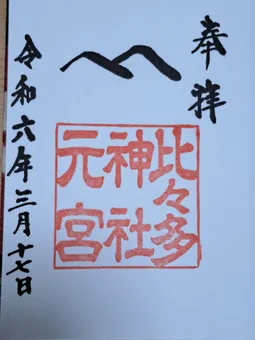 奉拝
比々多
神社
元宮
令和六年三月十七日